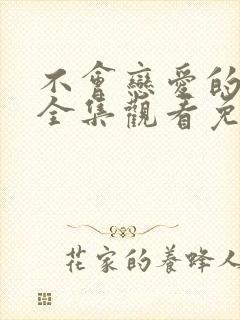 不會戀愛的
全集觀看免
花家的養蜂人